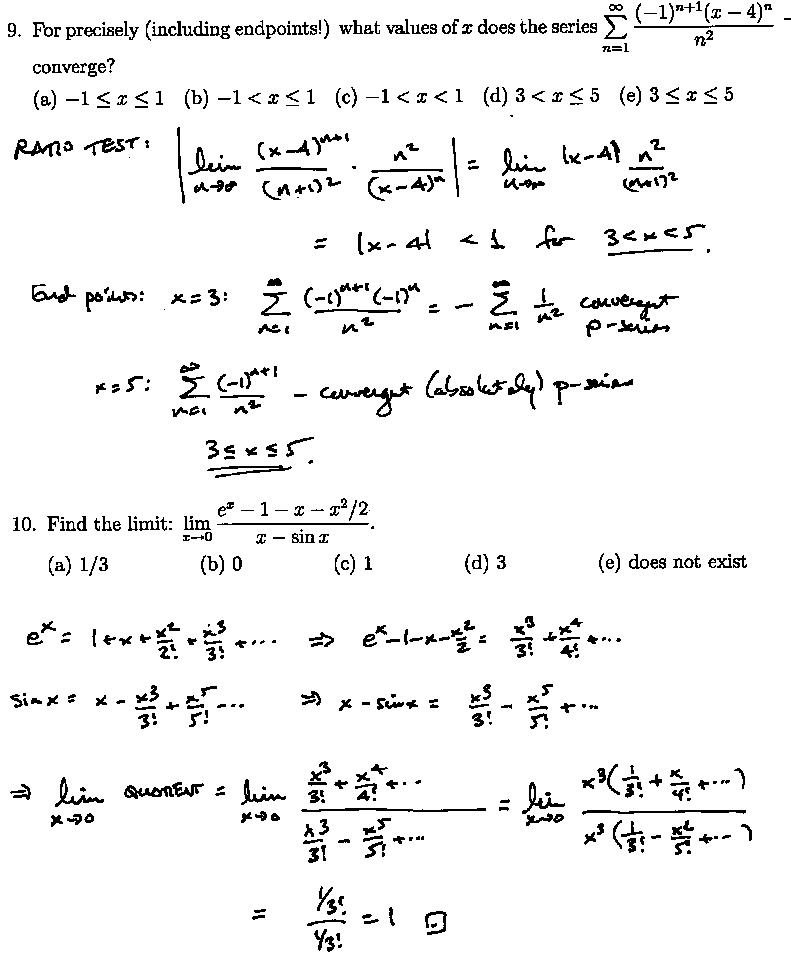 9. For precisely (including endpoints!) what values of x does the series ∑_{n=1}^{∞} (-1)^{n+1}(x - 4)^n / n^2
converge?
(a) -1 ≤ x ≤ 1 (b) -1 < x ≤ 1 (c) -1 < x < 1 (d) 3 < x ≤ 5 (e) 3 ≤ x ≤ 5
RATIO TEST: | lim_{n→∞} (x-4)^{n+1} / (n+1)^2 · n^2 / (x-4)^n | = lim_{n→∞} |x-4| n^2 / (n+1)^2
= |x-4| < 1 for 3<x<5.
End points: x=3: ∑_{n=1}^{∞} (-1)^{n+1} (-1)^n / n^2 = - ∑_{n=1}^{∞} 1/n^2 convergent
p-series
x=5: ∑_{n=1}^{∞} (-1)^{n+1} / n^2 - convergent (absolutely) p-series
3 ≤ x ≤ 5.
10. Find the limit: lim_{x→0} (e^x - 1 - x - x^2/2) / (x - sin x).
(a) 1/3 (b) 0 (c) 1 (d) 3 (e) does not exist
e^x = 1+x+x^2/2! + x^3/3! + ... ⇒ e^x-1-x-x^2/2 = x^3/3! + x^4/4! + ...
sin x = x - x^3/3! + x^5/5! ... ⇒ x - sin x = x^3/3! - x^5/5! + ...
⇒ lim_{x→0} QUOTIENT = lim_{x→0} (x^3/3! + x^4/4! + ...) / (x^3/3! - x^5/5! + ...) = lim_{x→0} x^3(1/3! + x/4! + ...) / x^3(1/3! - x^2/5! + ...)
= (1/3!) / (1/3!) = 1